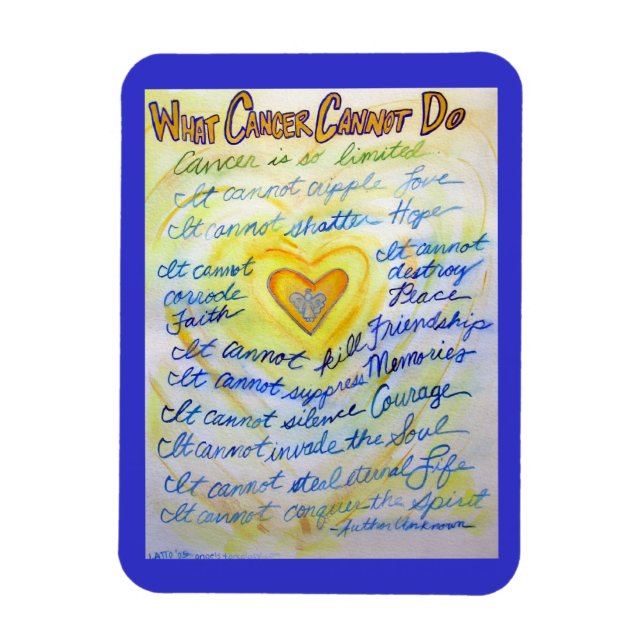 WHAT CANCER CANNOT DO
Cancer is so limited...
It cannot cripple Love
It cannot shatter Hope
It cannot
corrode
Faith
It cannot
destroy
Peace
It cannot kill Friendship
It cannot suppress Memories
It cannot silence Courage
It cannot invade the Soul
It cannot steal eternal Life
It cannot conquer the Spirit
-Author Unknown
LATTO '05